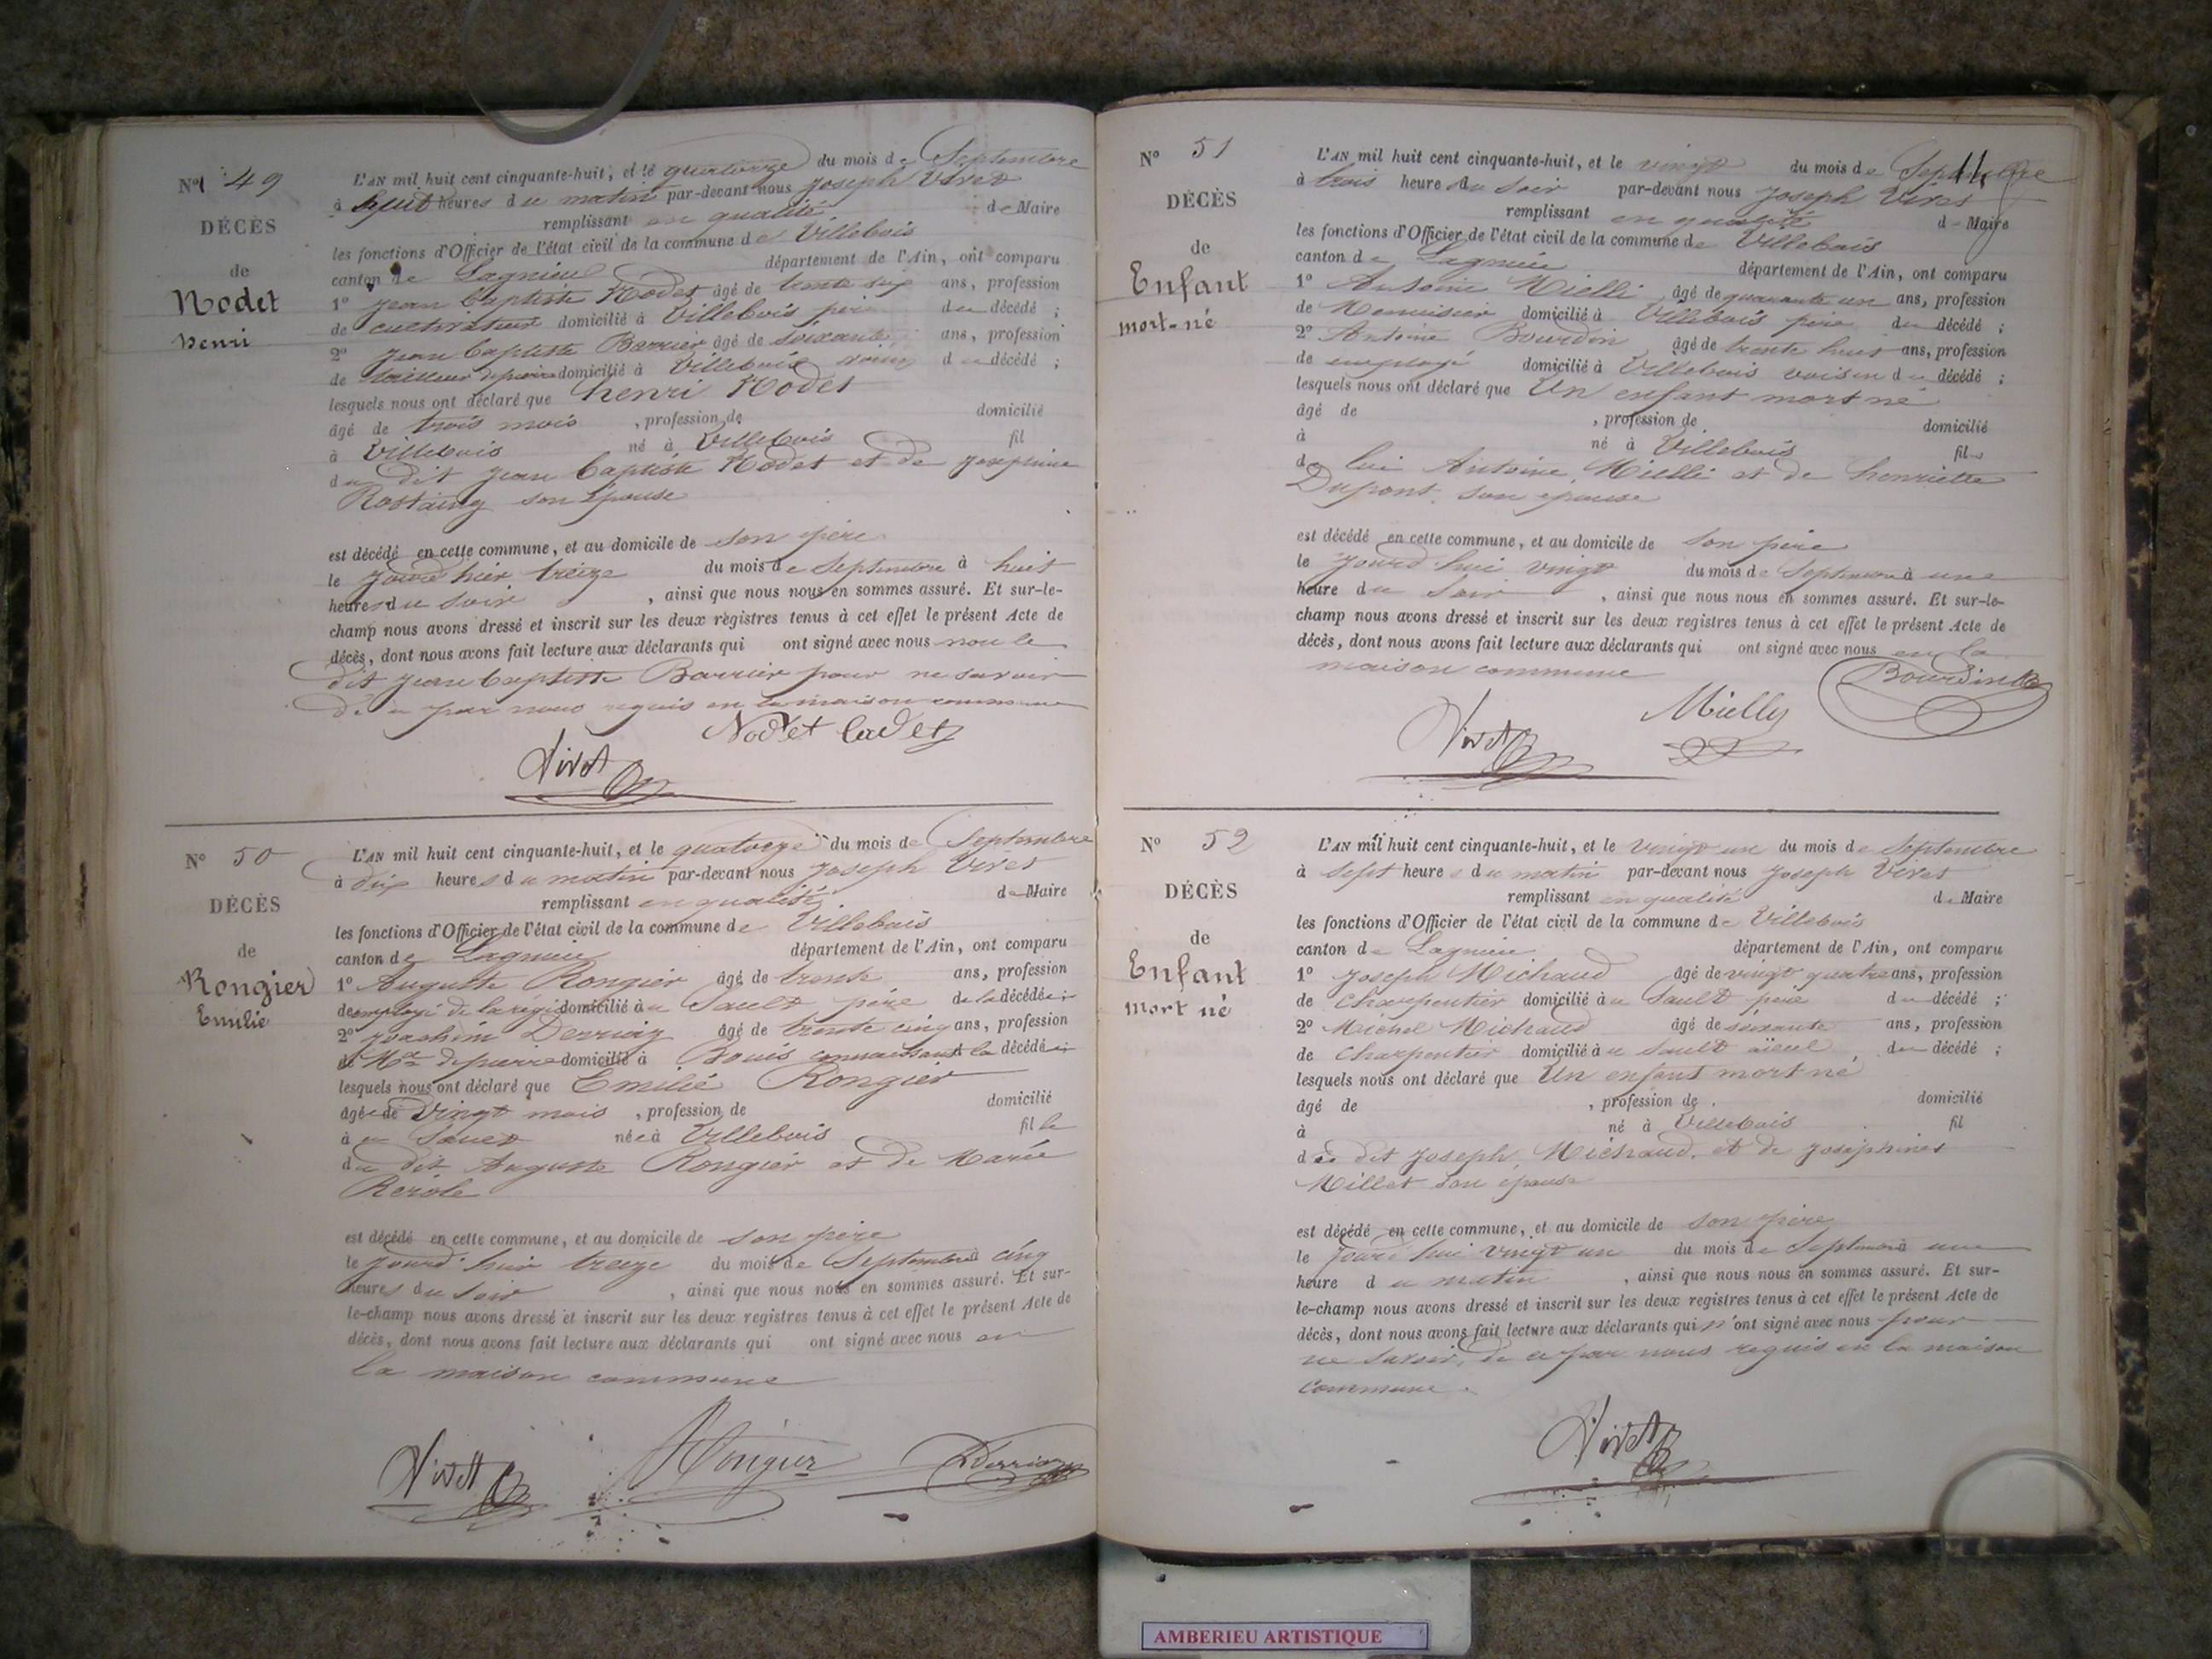 Nº 49
DÉCÈS
de
Nodet
henri
L'AN mil huit cent cinquante-huit, et le quatorze du mois de Septembre
à huit heures du matin par-devant nous Joseph Vivet
remplissant en qualité de Maire
les fonctions d'Officier de l'état civil de la commune de Villebois
canton de Lagnieu département de l'Ain, ont comparu
1º Jean Baptiste Nodet âgé de trente six ans, profession
de cultivateur domicilié à Villebois père du décédé ;
2º Jean Baptiste Barrier âgé de soixante ans, profession
de tailleur de pierre domicilié à Villebois voisin du décédé ;
lesquels nous ont déclaré que henri Nodet
âgé de trois mois , profession de domicilié
à Villebois né à Villebois fil
du dit Jean Baptiste Nodet et de Josephine
Rostaing son épouse
est décédé en cette commune, et au domicile de son père
le jourd'hier treize du mois de Septembre à huit
heures du soir , ainsi que nous nous en sommes assuré. Et sur-le-
champ nous avons dressé et inscrit sur les deux registres tenus à cet effet le présent Acte de
décès, dont nous avons fait lecture aux déclarants qui ont signé avec nous non le
dit Jean Baptiste Barrier pour ne savoir
de ce par nous requis en la maison commune
Nodet Cadet
Vivet
Nº 50
DÉCÈS
de
Rongier
Emilie
L'AN mil huit cent cinquante-huit, et le quatorze du mois de Septembre
à dix heures du matin par-devant nous Joseph Vivet
remplissant en qualité de Maire
les fonctions d'Officier de l'état civil de la commune de Villebois
canton de Lagnieu département de l'Ain, ont comparu
1º Auguste Rongier âgé de trente ans, profession
de employé de la régie domicilié au Sault père de la décédée ;
2º Joachim Derriaz âgé de trente cinq ans, profession
de Md de pierre domicilié à Bouis connaissant la décédée ;
lesquels nous ont déclaré que Emilie Rongier
âgée de vingt mois , profession de domicilié
à au Sault née à Villebois fille
du dit Auguste Rongier et de Marie
Rerole
est décédé en cette commune, et au domicile de son père
le jourd'hier treize du mois de Septembre à cinq
heures du soir , ainsi que nous nous en sommes assuré. Et sur-
le-champ nous avons dressé et inscrit sur les deux registres tenus à cet effet le présent Acte de
décès, dont nous avons fait lecture aux déclarants qui ont signé avec nous en
la maison commune
Vivet Rongier Derriaz
Nº 51
DÉCÈS
de
Enfant
mort-né
L'AN mil huit cent cinquante-huit, et le vingt du mois de Septembre
à trois heure du soir par-devant nous Joseph Vivet
remplissant en qualité de Maire
les fonctions d'Officier de l'état civil de la commune de Villebois
canton de Lagnieu département de l'Ain, ont comparu
1º Antoine Mielli âgé de quarante un ans, profession
de Menuisier domicilié à Villebois père du décédé ;
2º Antoine Bourdin âgé de trente huit ans, profession
de employé domicilié à Villebois voisin du décédé ;
lesquels nous ont déclaré que Un enfant mort né
âgé de , profession de domicilié
à né à Villebois fils
de lui Antoine Mielli et de henriette
Dupont son épouse
est décédé en cette commune, et au domicile de son père
le jourd'hui vingt du mois de Septembre à une
heure du soir , ainsi que nous nous en sommes assuré. Et sur-le-
champ nous avons dressé et inscrit sur les deux registres tenus à cet effet le présent Acte de
décès, dont nous avons fait lecture aux déclarants qui ont signé avec nous en la
maison commune
Bourdin
Mielly
Vivet
Nº 52
DÉCÈS
de
Enfant
mort né
L'AN mil huit cent cinquante-huit, et le vingt un du mois de Septembre
à sept heures du matin par-devant nous Joseph Vivet
remplissant en qualité de Maire
les fonctions d'Officier de l'état civil de la commune de Villebois
canton de Lagnieu département de l'Ain, ont comparu
1º Joseph Michaud âgé de vingt quatre ans, profession
de Charpentier domicilié au Sault père du décédé ;
2º Michel Michaud âgé de soixante ans, profession
de Charpentier domicilié au Sault aïeul du décédé ;
lesquels nous ont déclaré que Un enfant mort né
âgé de , profession de domicilié
à né à Villebois fil
du dit Joseph Michaud, et de Joséphine
Millet son épouse
est décédé en cette commune, et au domicile de son père
le jourd'hui vingt un du mois de Septembre à une
heure du matin , ainsi que nous nous en sommes assuré. Et sur-
le-champ nous avons dressé et inscrit sur les deux registres tenus à cet effet le présent Acte de
décès, dont nous avons fait lecture aux déclarants qui n'ont signé avec nous pour
ne savoir, de ce par nous requis en la maison
commune.
Vivet
AMBERIEU ARTISTIQUE